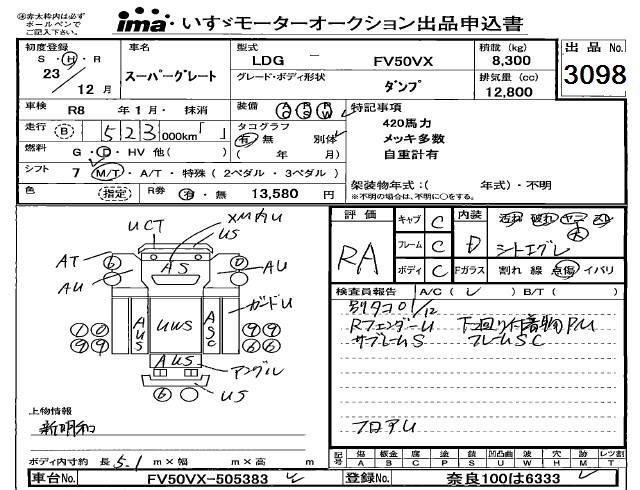 ㊟赤太枠内は必ず
ボールペンで
ご記入下さい。
ima いすゞモーターオークション出品申込書
初度登録 車名 型式 積載(kg) 出品No.
S・H・R スーパーグレート LDG FV50VX 8,300 3098
23 12月 グレード・ボディ形状 ダンプ 排気量(cc) 12,800
車検 R8 年1月・抹消 装備 AC PS PW 特記事項
走行 B 523 000km タコグラフ 有 無 別体 420馬力
メッキ多数
燃料 G・D・HV 他( ) ( 年 月) 自重計有
シフト 7 M/T・A/T・特殊(2ペダル・3ペダル)
架装物年式:( 年式)・不明
※不明の場合は、不明に○をする。
色 指定 R券 有・無 13,580 円
評価 RA キャブ C 内装 D 汚れ 破れ ヤニ スレ 大
フレーム C シートエグレ
ボディ C Fガラス 割れ 線 点傷 イバリ
検査員報告 A/C( レ ) B/T( )
別タコ01/12
RフェンダーU 下回り付着物P.U
サブレームS フレームSC
フロアU
UCT XM内U US
AT 6 AS 0 AU
AU ガードU
10 AUS UWS ASC 99
99 66
AUS アングル
6 US
上物情報
新明和
ボディ内寸約 長 5.1 m×幅 m×高 m
記号 傷A 板金B 腐C 塗P 錆S 凹凸曲U 波W 穴H 跡M レンズ割T
車台No. FV50VX-505383 登録No. 奈良100は6333